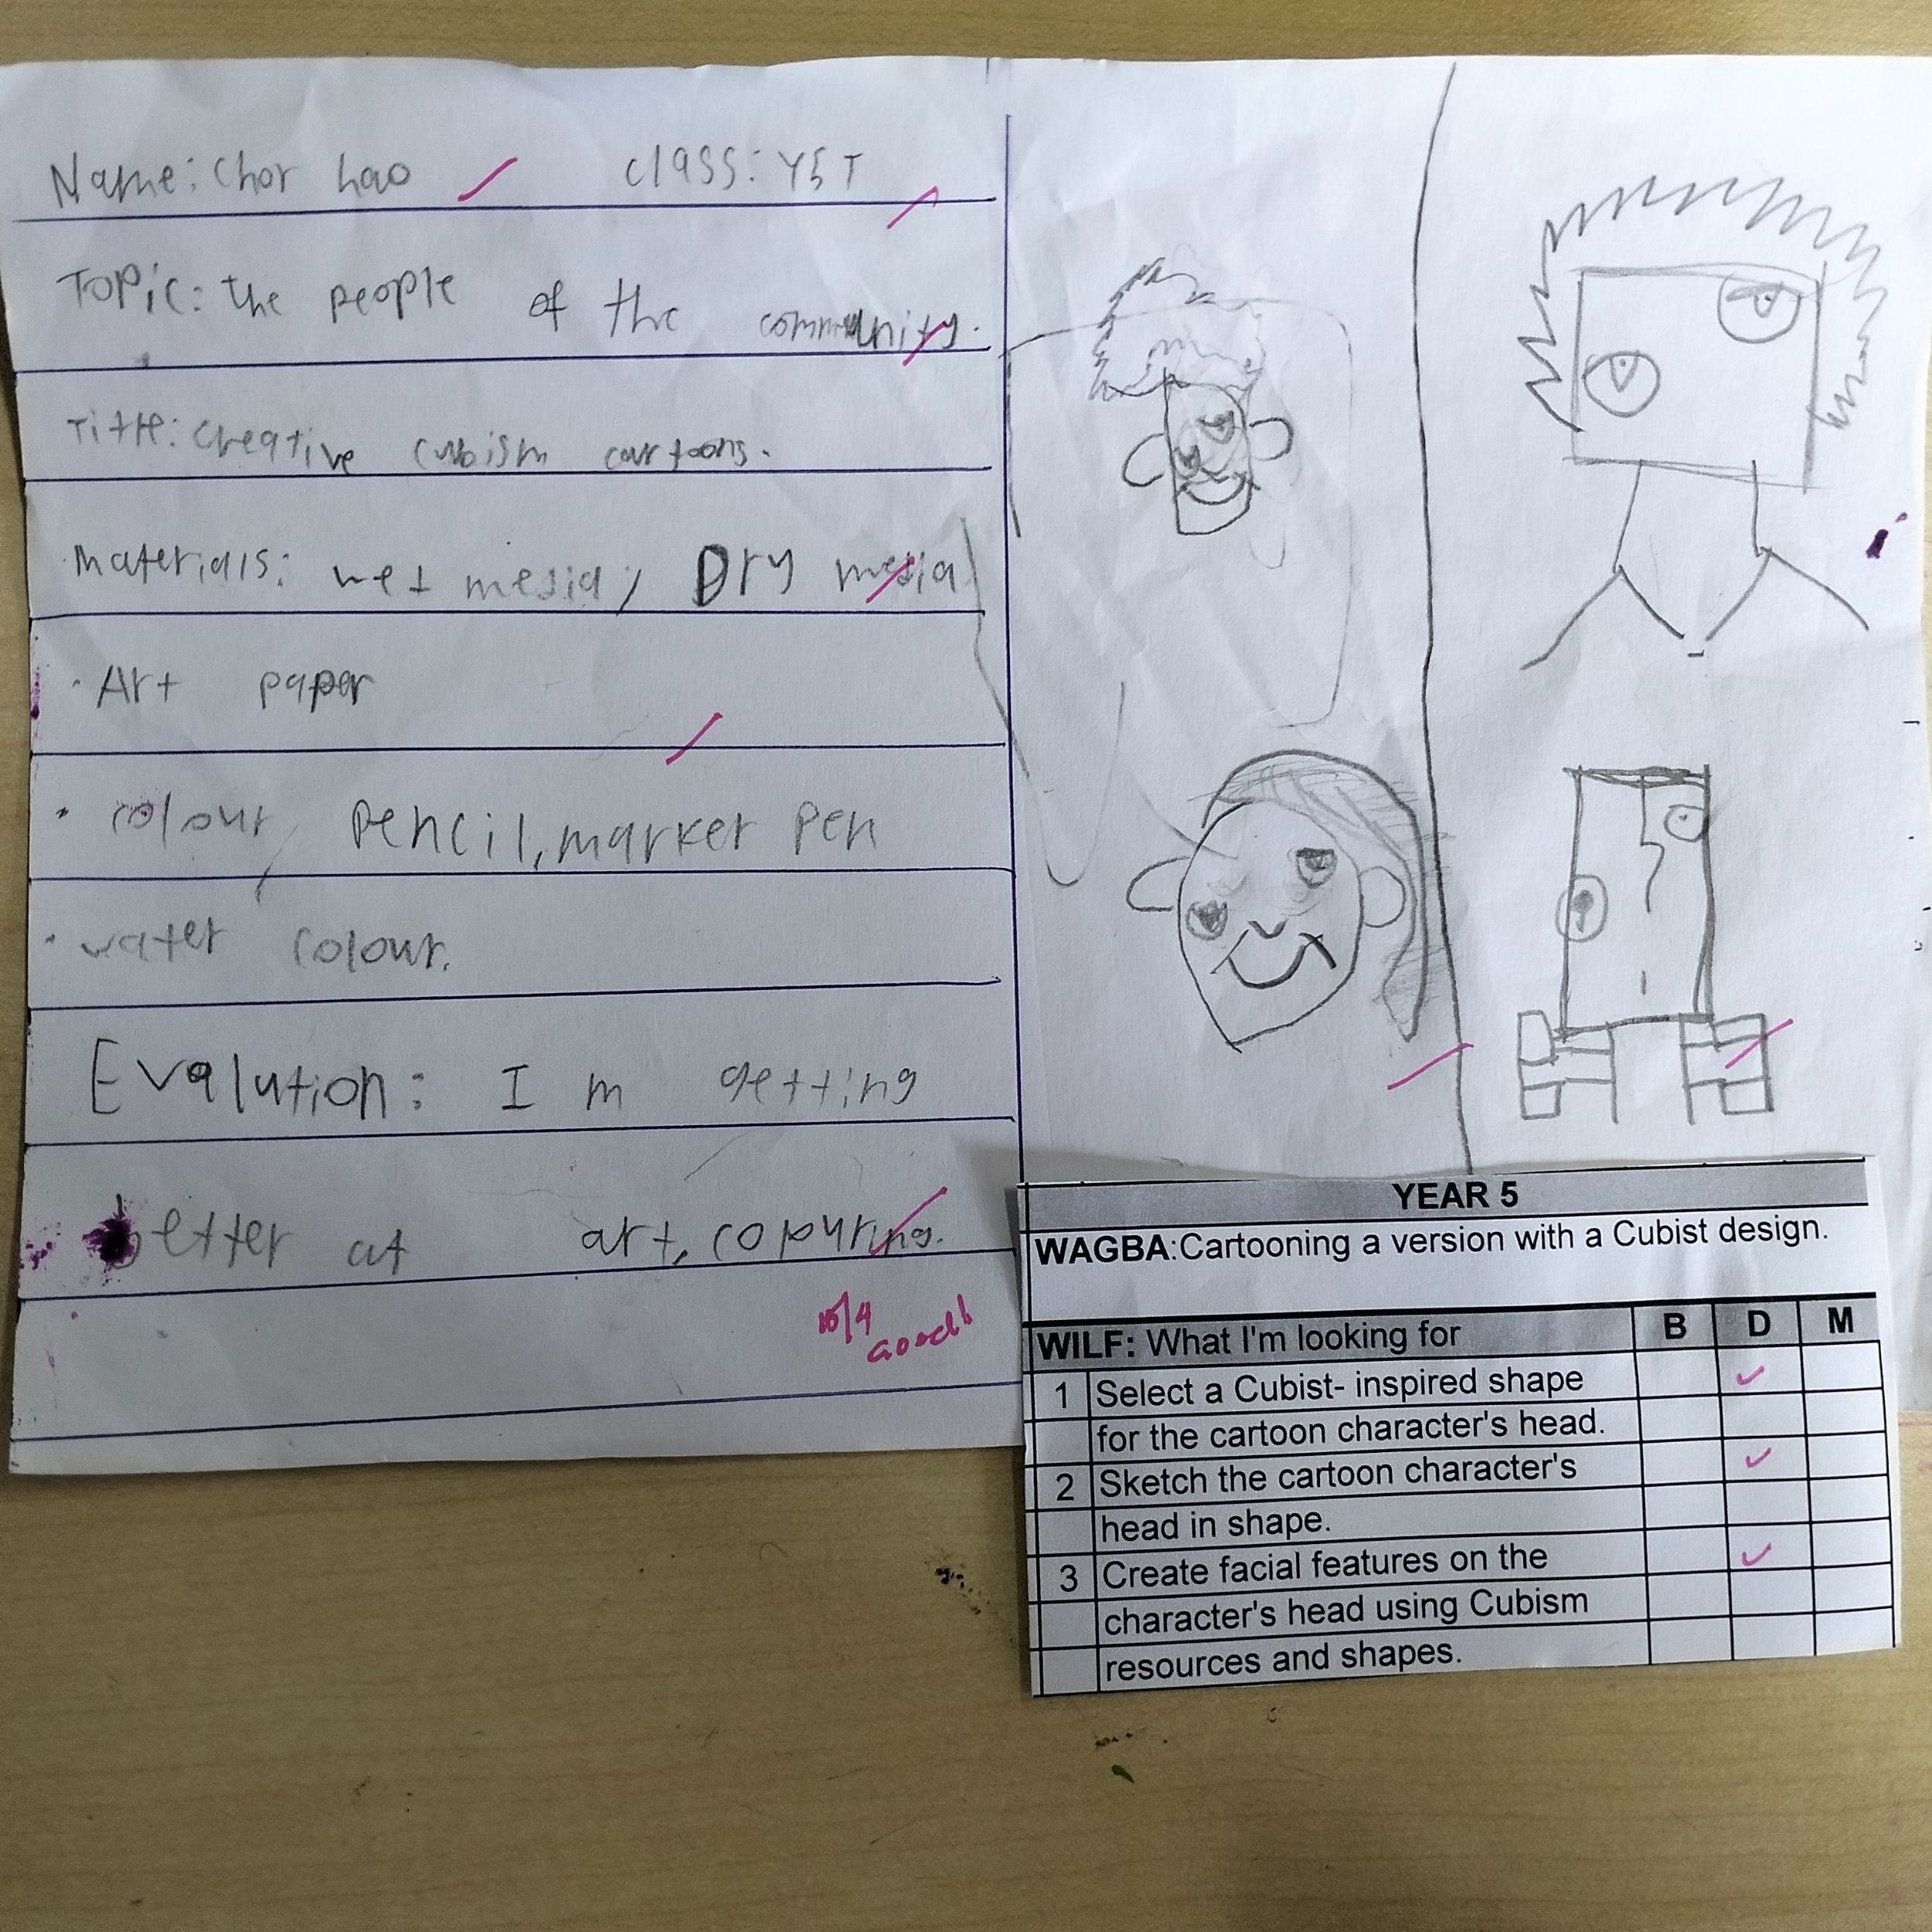 Name: Chor hao class: Y5T
Topic: the people of the community.
Title: creative cubism cartoons.
Materials: wet mesia, Dry mesia
· Art paper
· colour, pencil, marker pen
· water colour.
Evalution: I m getting
better at art, colouring.
Good!
YEAR 5
WAGBA:Cartooning a version with a Cubist design.
WILF: What I'm looking for B D M
1 Select a Cubist- inspired shape
for the cartoon character's head.
2 Sketch the cartoon character's
head in shape.
3 Create facial features on the
character's head using Cubism
resources and shapes.